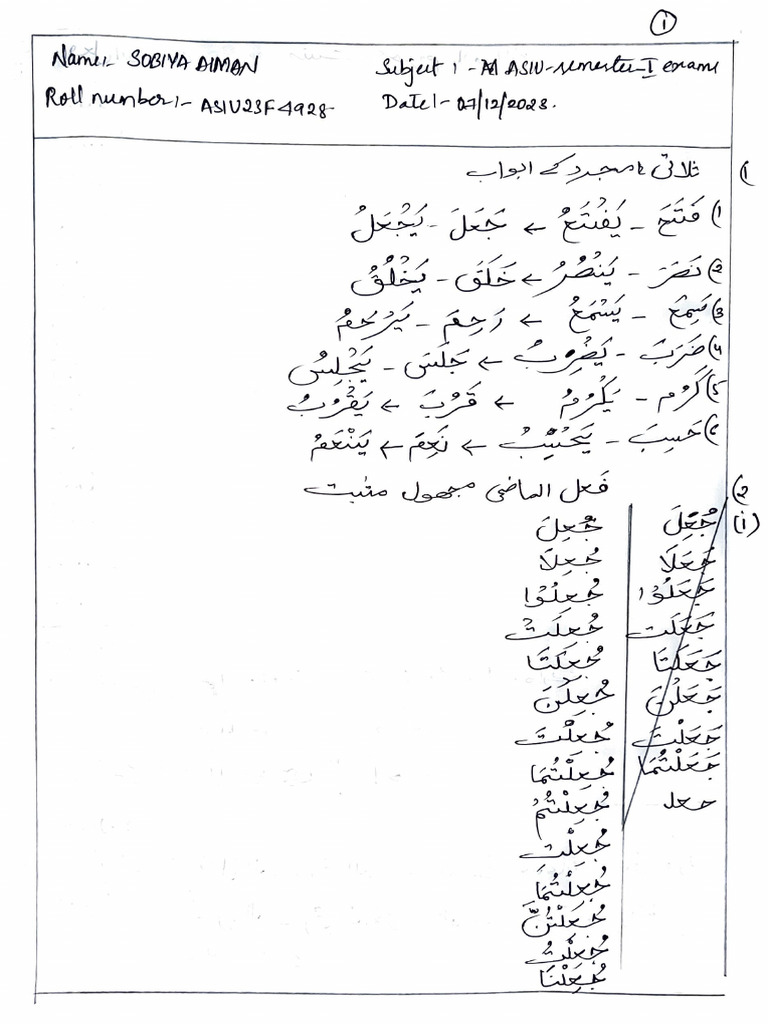 ①
Name:- SOBIYA AIMAN
Subject :- ASIU-semester-I exams
Roll number:- ASIU23F4928
Date:- 07/12/2023.
۱) ثلاثی مجرد کے ابواب
1) فَتَحَ - يَفْتَحُ ← جَعَلَ - يَجْعَلُ
2) نَصَرَ - يَنْصُرُ ← خَلَقَ - يَخْلُقُ
3) سَمِعَ - يَسْمَعُ ← رَحِمَ - يَرْحَمُ
4) ضَرَبَ - يَضْرِبُ ← جَلَسَ - يَجْلِسُ
5) كَرُمَ - يَكْرُمُ ← قَرُبَ ← يَقْرُبُ
6) حَسِبَ - يَحْسِبُ ← نَعِمَ ← يَنْعَمُ
2) فعل الماضی مجهول مثبت
(i) جُعِلَ جُعِلَ
جَعَلَا جُعِلَا
جَعَلُوْا جُعِلُوْا
جَعَلَت جُعِلَتْ
جَعَلَتَا جُعِلَتَا
جَعَلْنَ جُعِلْنَ
جَعَلْتَ جُعِلْتَ
جَعَلْتُمَا جُعِلْتُمَا
جعلـ جُعِلْتُمْ
جُعِلْتِ
جُعِلْتُمَا
جُعِلْتُنَّ
جُعِلْتُ
جُعِلْنَا